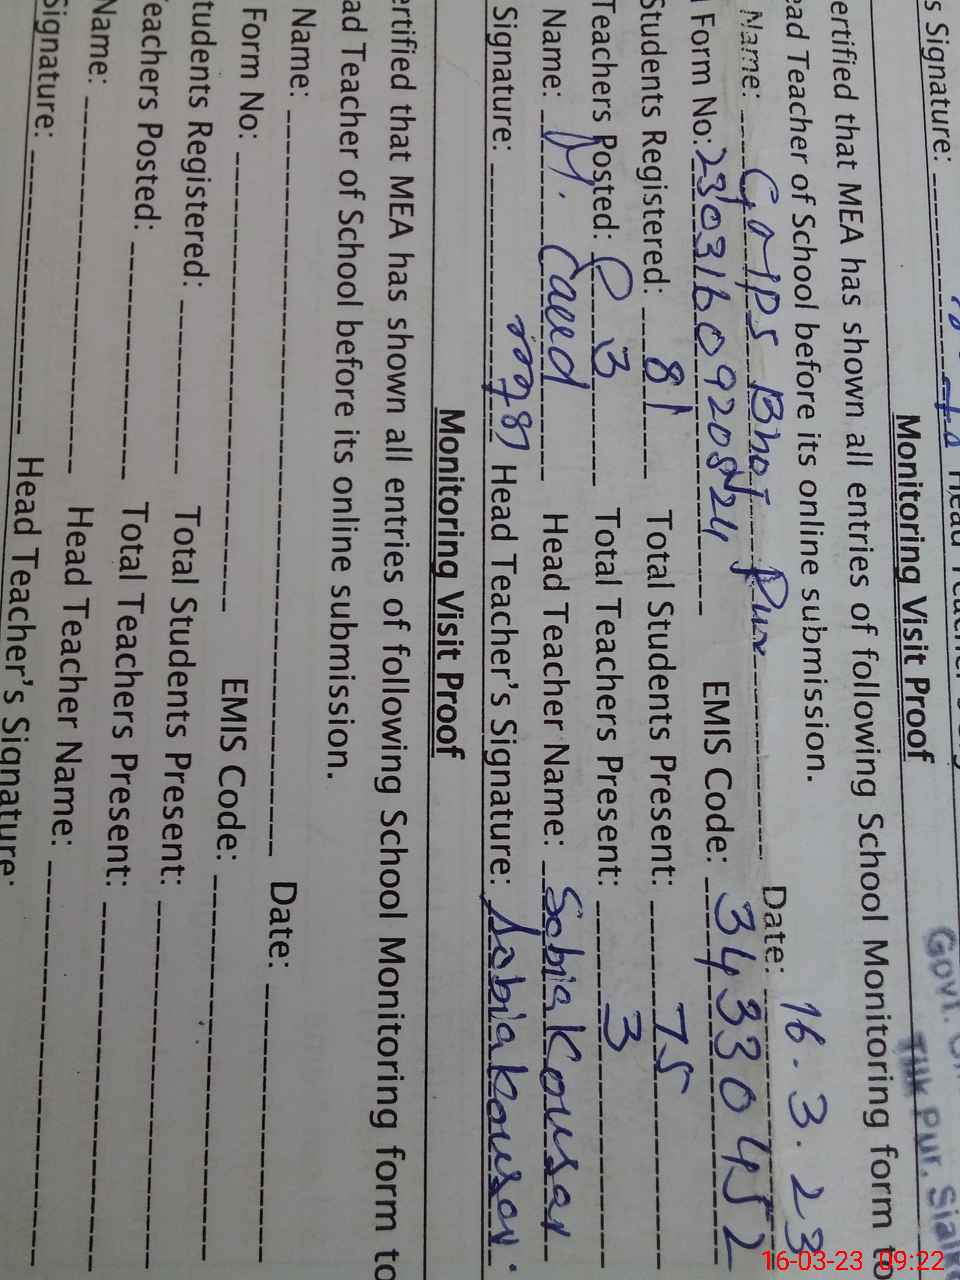 s Signature:
Govt.
Tilk Pur, Sialk
Monitoring Visit Proof
ertified that MEA has shown all entries of following School Monitoring form to
ead Teacher of School before its online submission.
Name: GGPS Bhoi Pur Date: 16.3.23
Form No: EMIS Code: 34330452
Students Registered: 81 Total Students Present: 75
Teachers Posted: 3 Total Teachers Present: 3
Name: M. Saeed Head Teacher Name: Sobia Kousar
Signature: Head Teacher's Signature: Sobia kousar.
Monitoring Visit Proof
ertified that MEA has shown all entries of following School Monitoring form to
ad Teacher of School before its online submission.
Name: Date:
Form No: EMIS Code:
tudents Registered: Total Students Present:
eachers Posted: Total Teachers Present:
Name: Head Teacher Name:
Signature: Head Teacher's Signature:
16-03-23 09:22